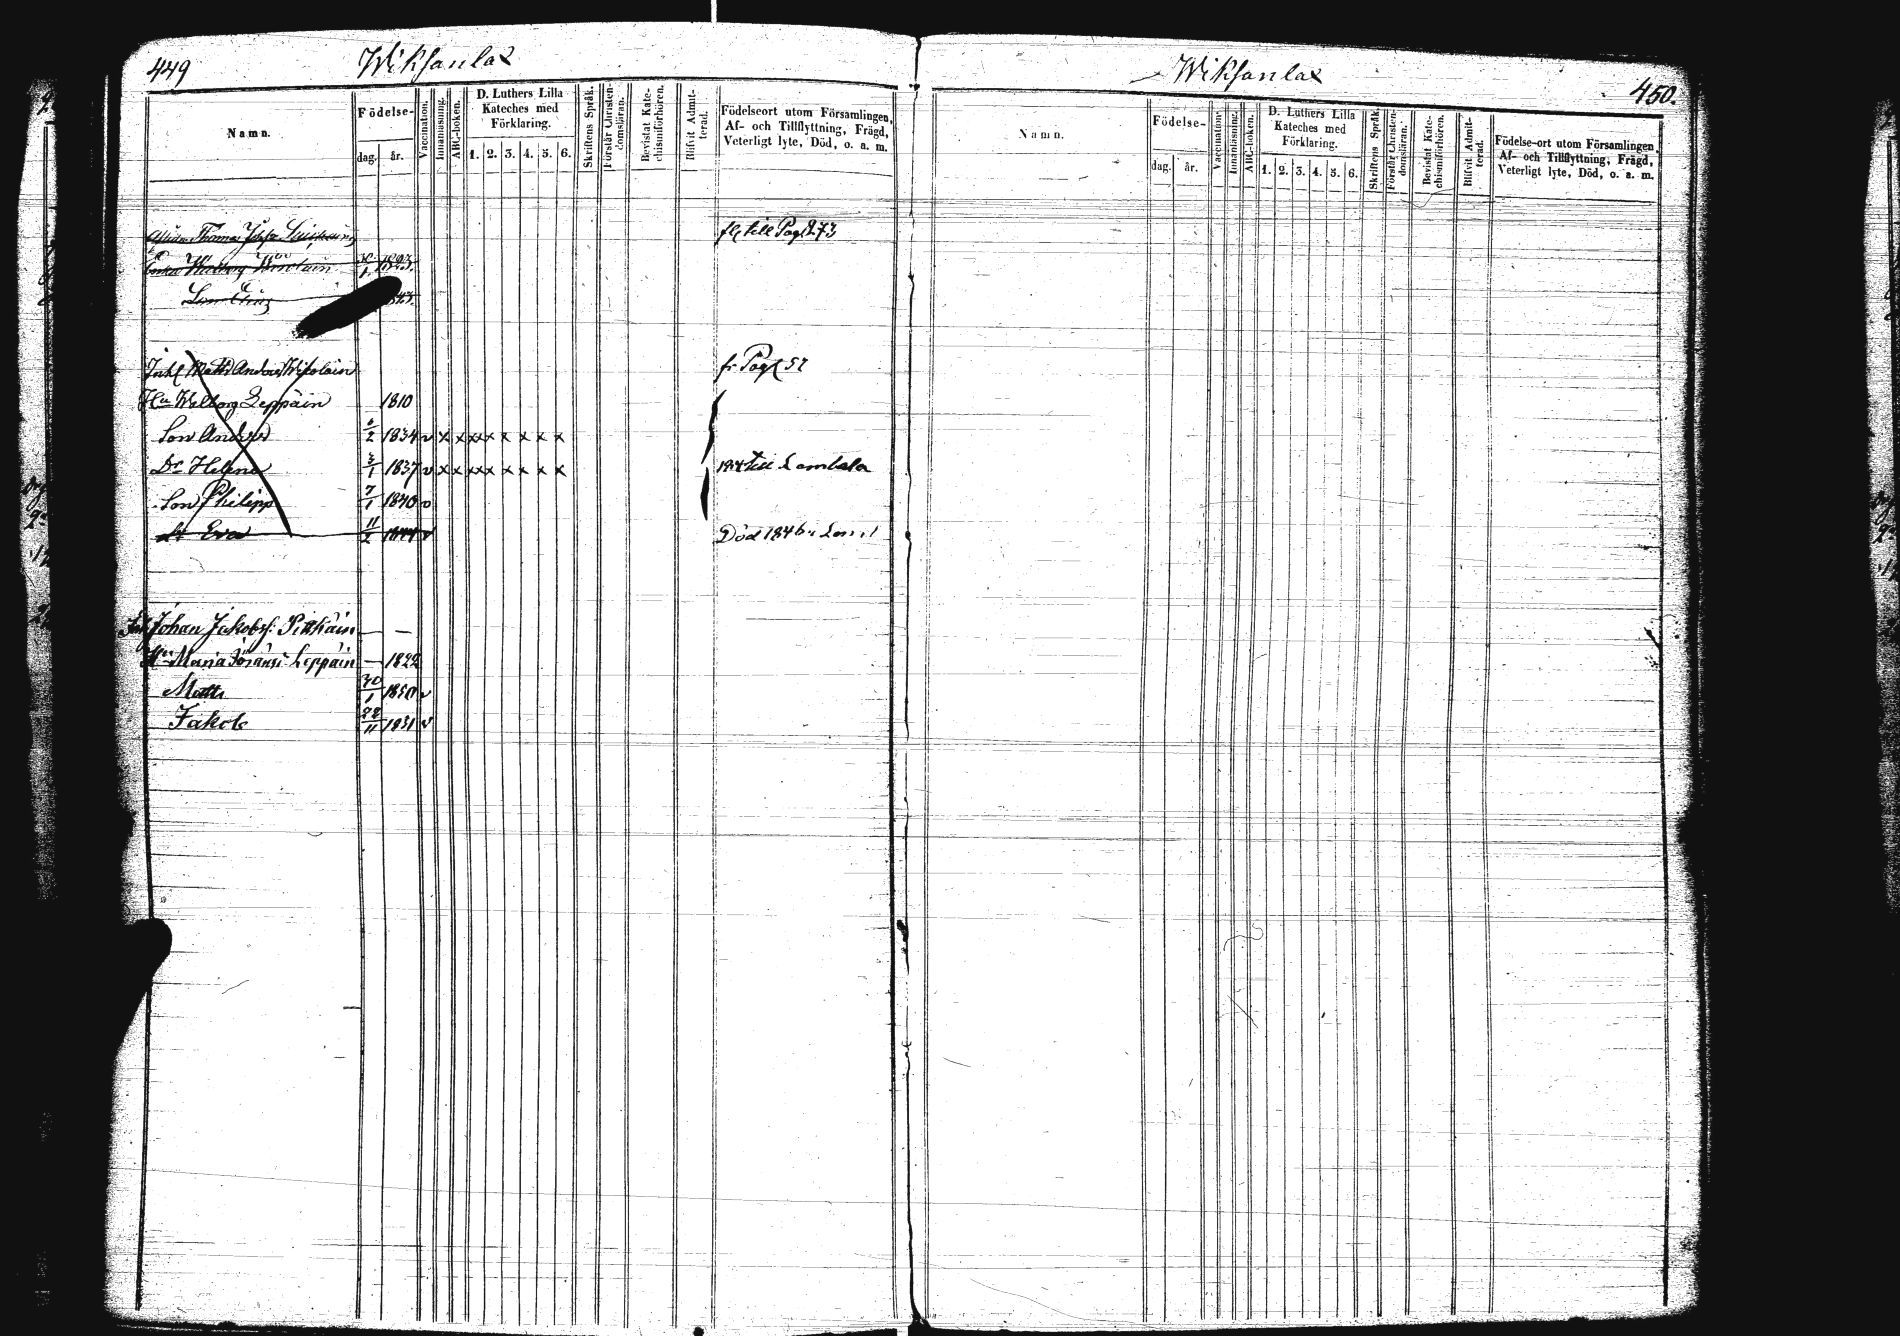 449
Wiksanlax
Namn.
Födelse-
dag.
år.
Vaccination.
Innanläsning.
ABC-boken.
D. Luthers Lilla
Kateches med
Förklaring.
1. 2. 3. 4. 5. 6.
Skriftens Språk.
Förstår Christen-
domsläran.
Bevistat Kate-
chismiförhören.
Blifvit Admit-
terad.
Födelseort utom Församlingen,
Af- och Tillflyttning, Frägd,
Veterligt lyte, Död, o. a. m.
Thomas fl till Pag 273
Walborg 1823.
Son
Matts Anders Wikolain fr Pag 57
Hu Walborg Leppäin 1810
Son Anders 6/2 1834 v x x x x x x x x x
Dr Helena 3/1 1837 v x x x x x x x x x till Lambala
Son Philipp 7/1 1840 v
Dr Eva 11/2 1844 v Död 1846
Johan Jakobss. Pitkäin — —
Hu Maria Leppäin — 1822
Matts 30/1 1850 v
Jakob 22/11 1851 v
Wiksanlax
450.
Namn.
Födelse-
dag.
år.
Vaccination.
Innanläsning.
ABC-boken.
D. Luthers Lilla
Kateches med
Förklaring.
1. 2. 3. 4. 5. 6.
Skriftens Språk.
Förstår Christen-
domsläran.
Bevistat Kate-
chismiförhören.
Blifvit Admit-
terad.
Födelse-ort utom Församlingen
Af- och Tillflyttning, Frägd,
Veterligt lyte, Död, o. a. m.